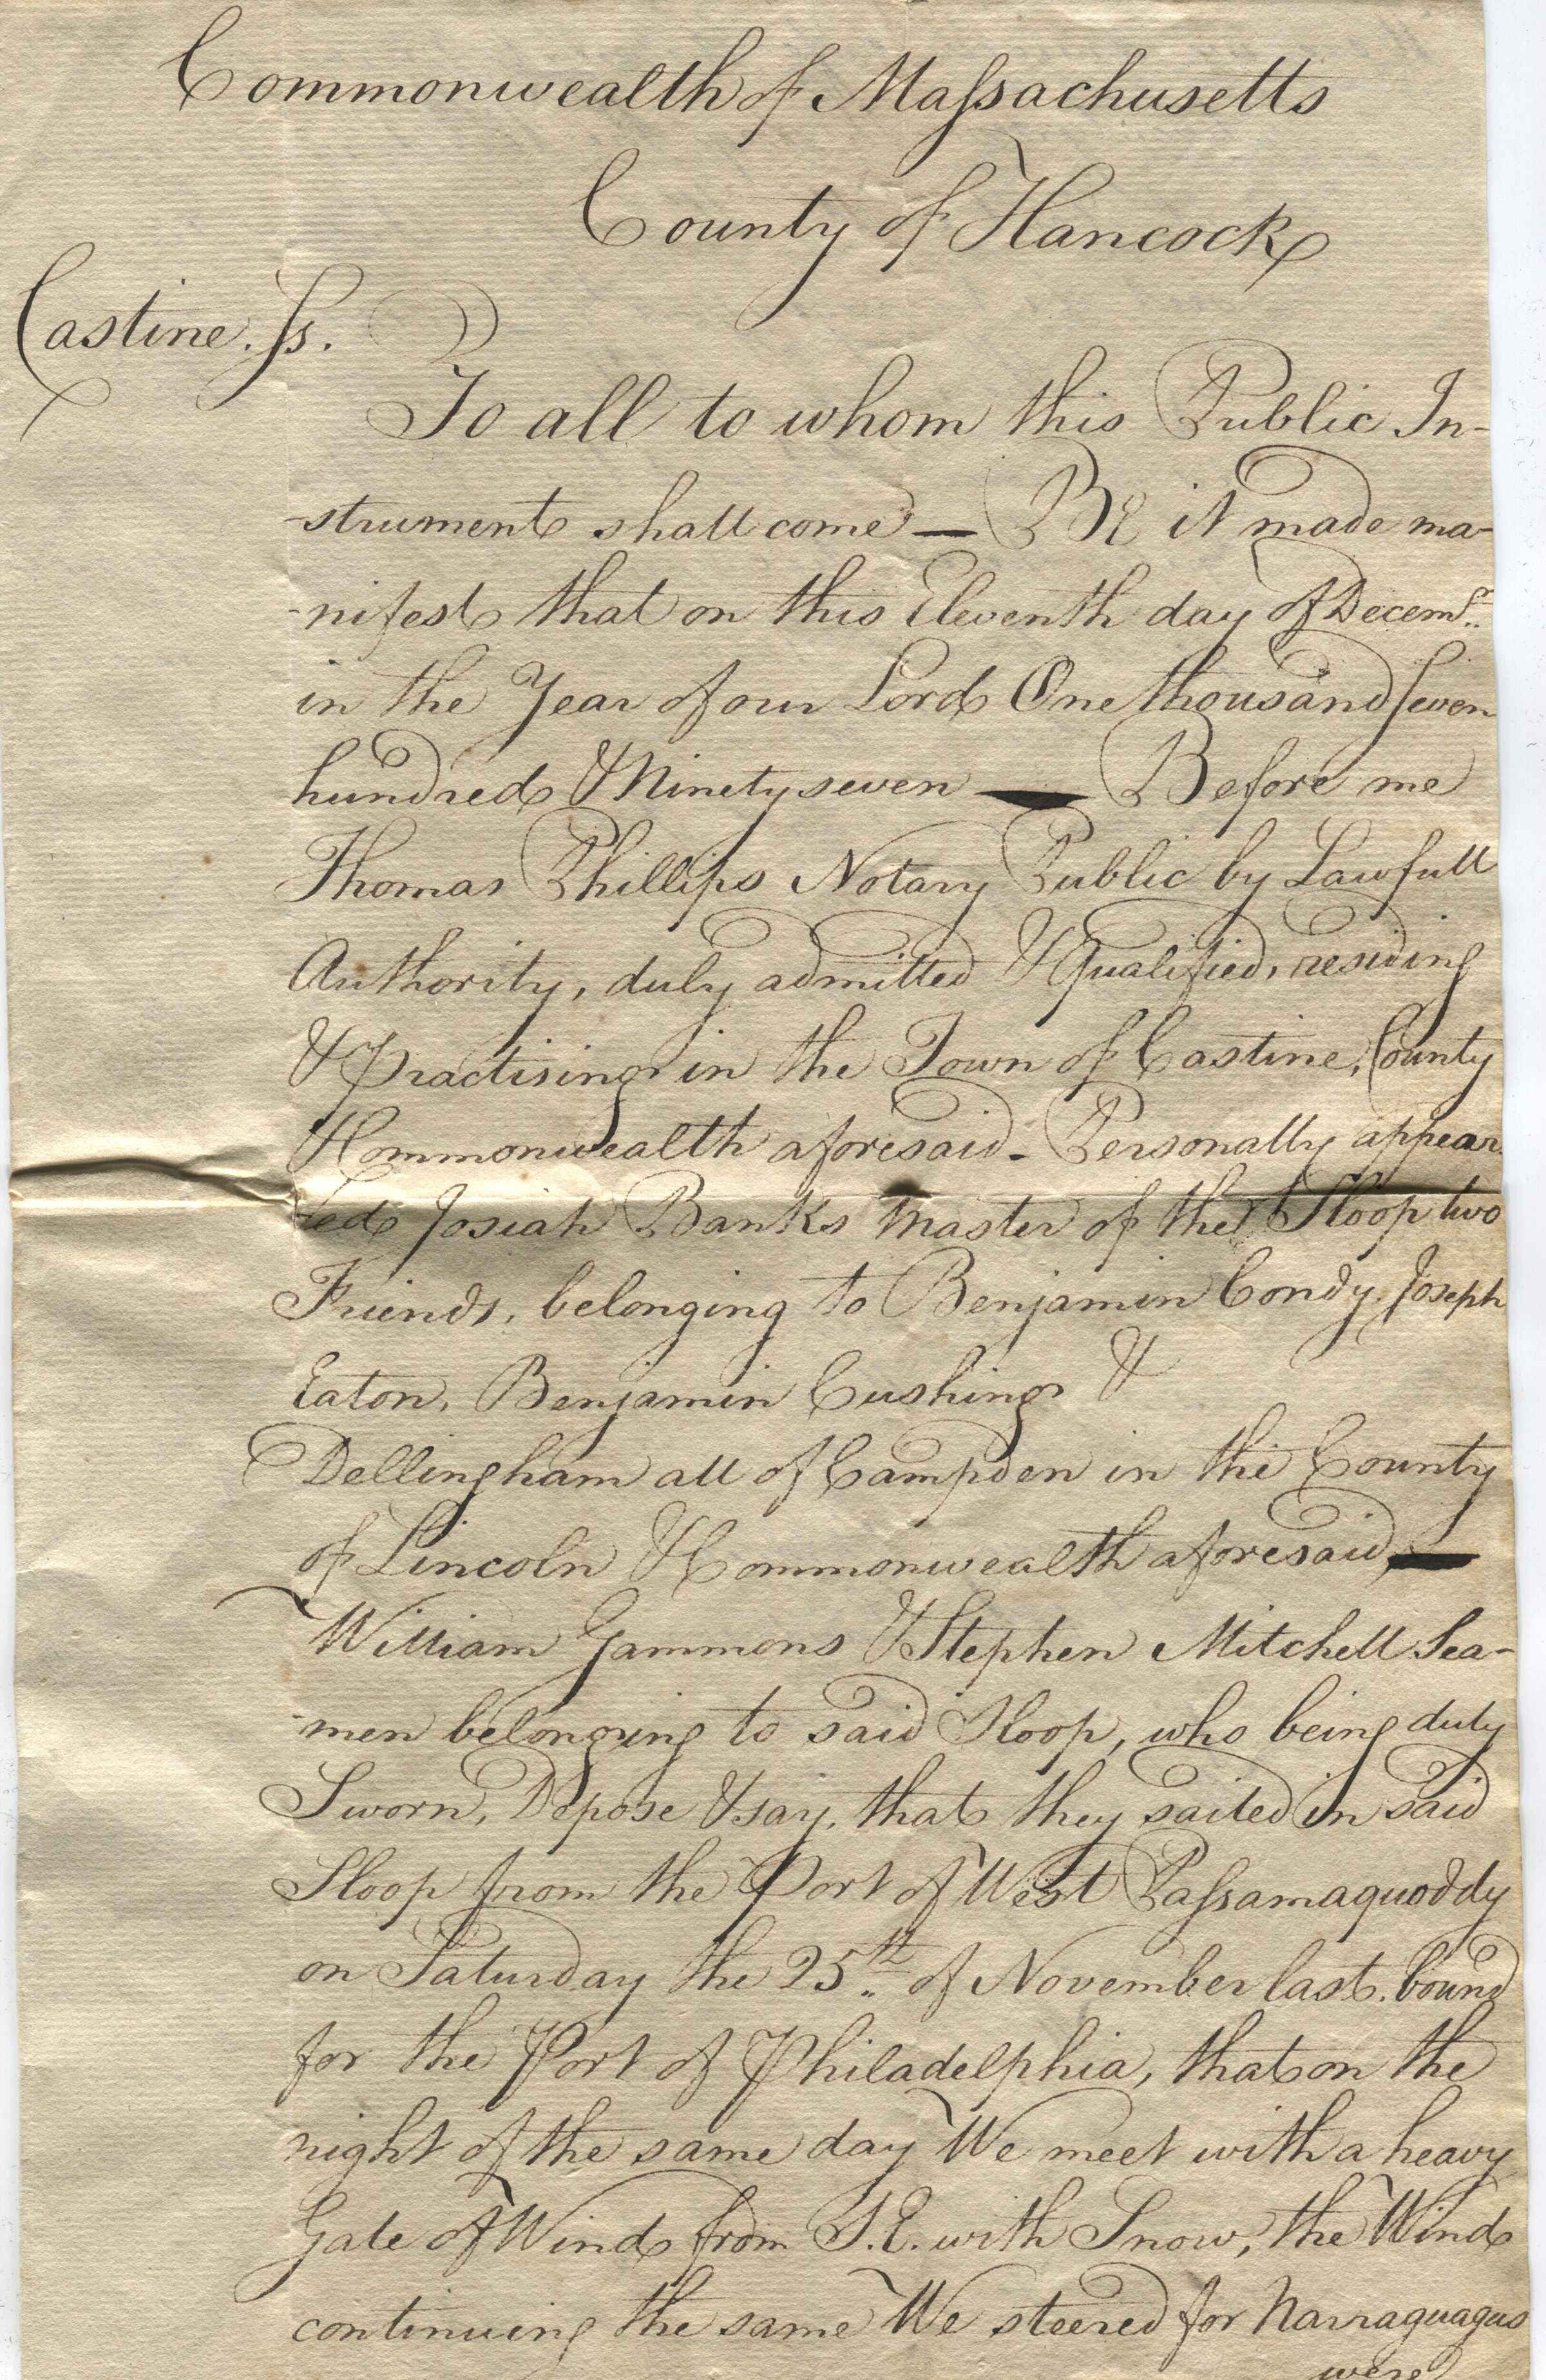 Commonwealth of Massachusetts
County of Hancock
Castine. ss.
To all to whom this Public In-
-strument shall come — BE it made ma-
-nifest that on this Eleventh day of Decemr.
in the Year of our Lord One thousand seven
hundred & Ninety seven — Before me
Thomas Phillips Notary Public by Lawfull
Authority, duly admitted & Qualified, residing
& Practising in the Town of Castine, County
& Commonwealth aforesaid - Personally appear-
-ed Josiah Banks Master of the Sloop two
Friends, belonging to Benjamin Condy, Joseph
Eaton, Benjamin Cushing &
Dellingham all of Campden in the County
of Lincoln & Commonwealth aforesaid, —
William Gammons & Stephen Mitchell Sea-
-men belonging to said Sloop, who being duly
Sworn, Depose & say, that they sailed in said
Sloop from the Port of West Passamaquoddy
on Saturday the 25th. of November last, bound
for the Port of Philadelphia, that on the
night of the same day We meet with a heavy
Gale of Wind from S.E. with Snow, the Wind
continuing the same We steered for Narraguagus
were